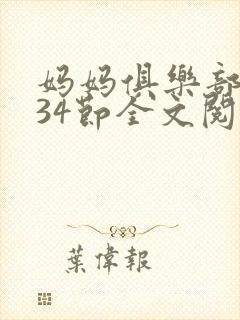 妈妈俱樂部
34節全文閱
葉偉報